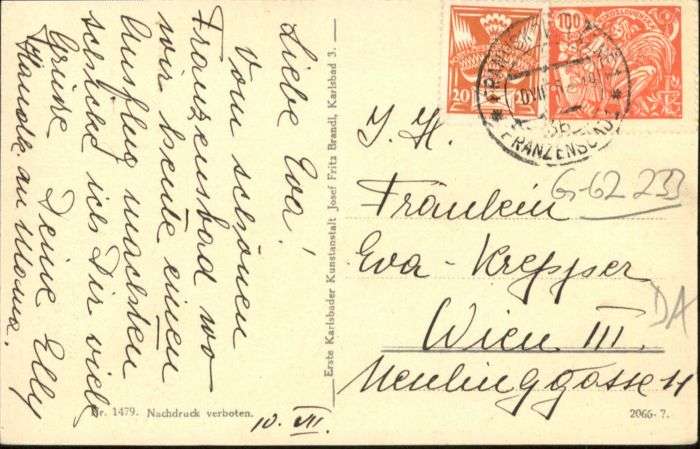 Liebe Eva!
Vom schönen
Franzensbad wo
wir heute einen
Ausflug machten
schicke ich Dir viele
Grüße Deine Elly
Handk. an Mama.
Erste Karlsbader Kunstanstalt Josef Fritz Brandl, Karlsbad 3.
Nr. 1479. Nachdruck verboten.
10. VII.
20
100
FRANZENSBAD
I. H.
Fräulein
Eva Krepper
Wien III.
Neulinggasse 11
G-62 233
DA
2066-7.